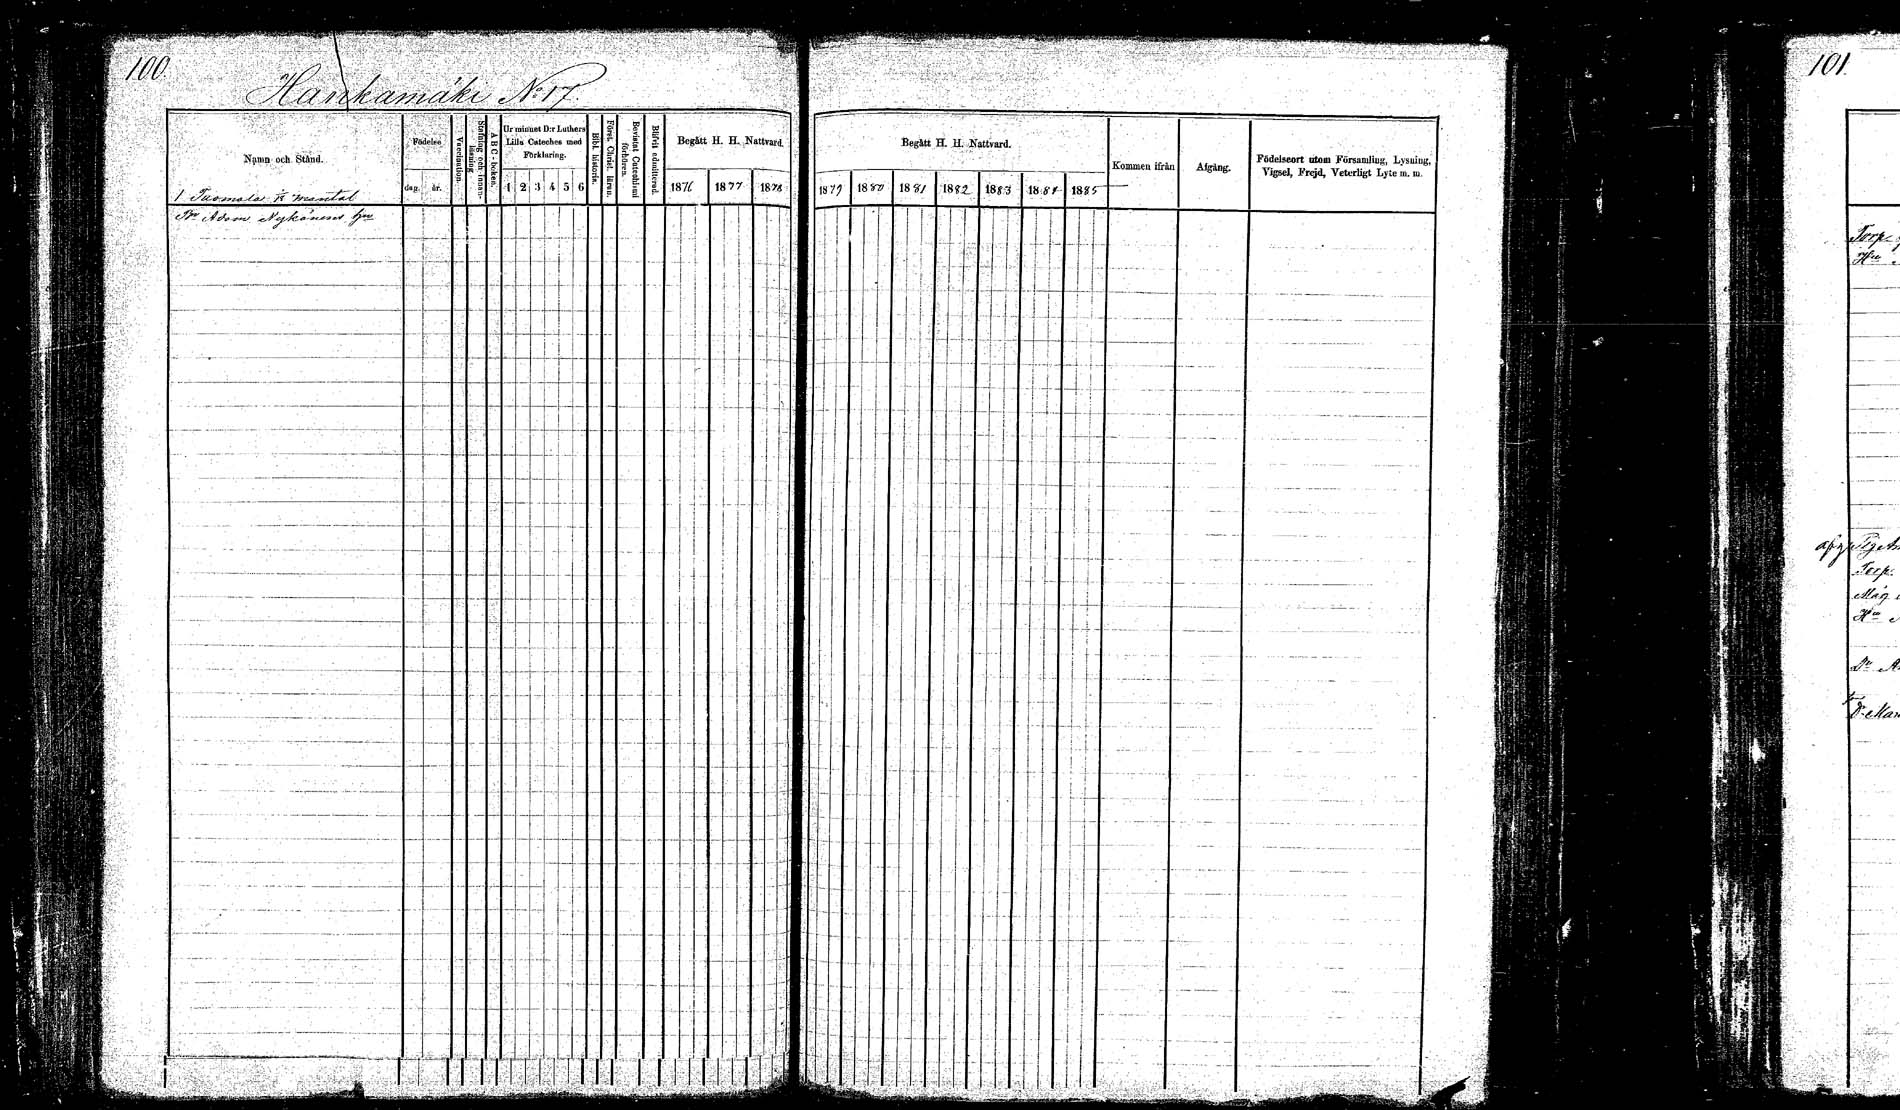 100.
Hankamäki No 17.
Namn och Stånd.
Födelse
dag. år.
Vaccination.
Stafning och innan-läsning
A B C-boken.
Ur minnet D:r Luthers
Lilla Cateches med
Förklaring.
1 2 3 4 5 6
Bibl. historia.
Först. Christ. läran.
Bevistat Catechismi förhören.
Blifvit admitterad.
Begått H. H. Nattvard.
1876 1877 1878
Begått H. H. Nattvard.
1879 1880 1881 1882 1883 1884 1885
Kommen ifrån
Afgång.
Födelseort utom Församling, Lysning,
Vigsel, Frejd, Veterligt Lyte m. m.
1 Tuomala mantal
Adam Nykänens
101.
Torp.
Torp.
Måg